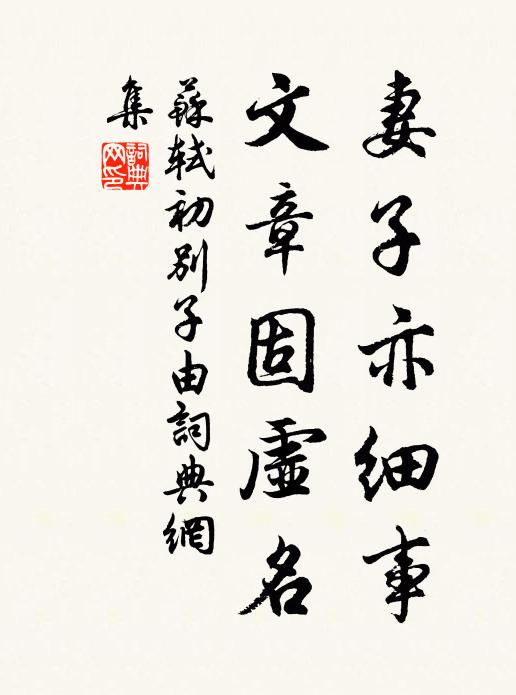 妻子亦细事
文章固虚名
蘇軾初别子由詞典網
集
詞典
网印